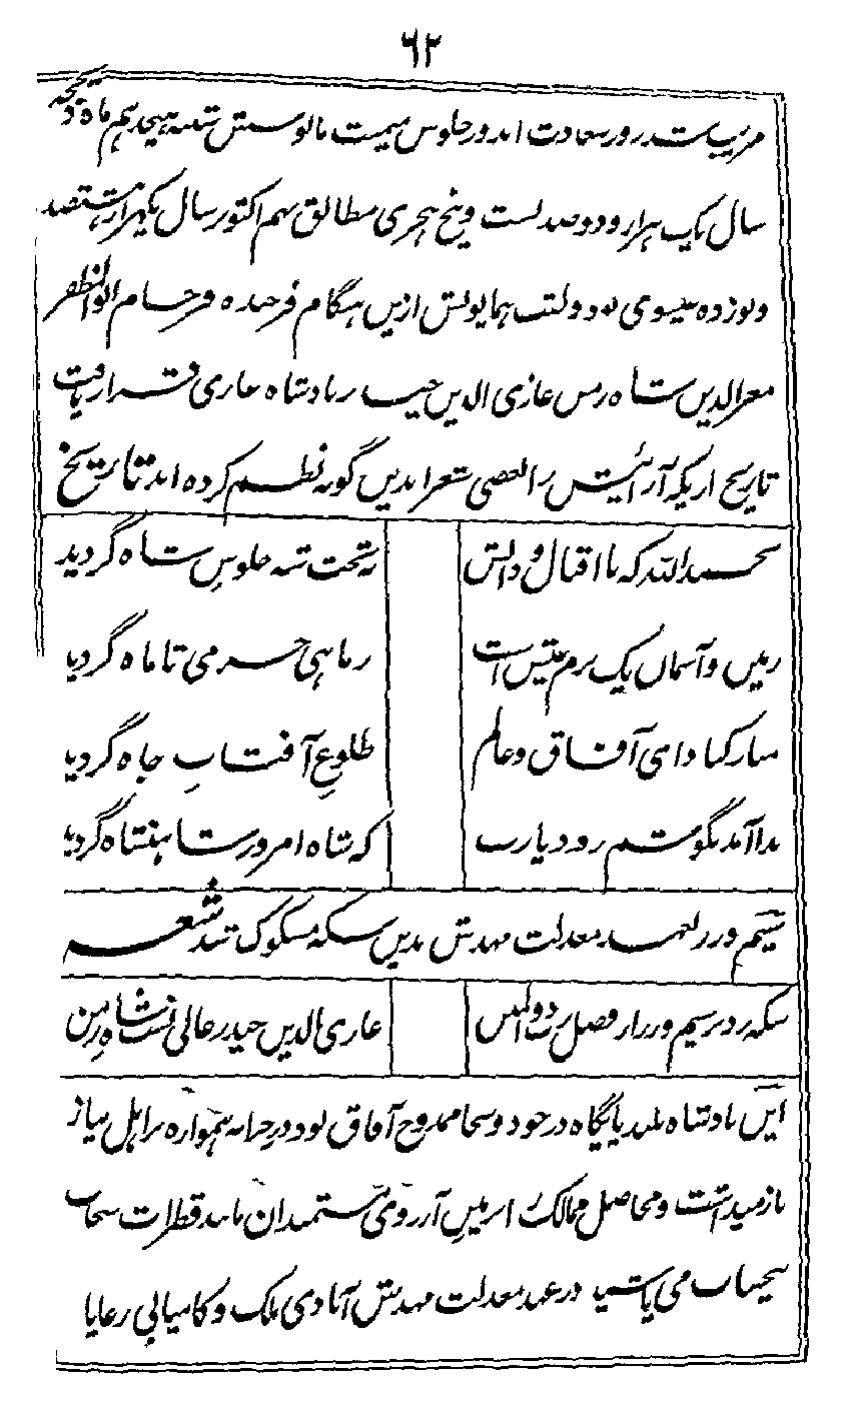 ۶۲
مرتبت در روز سعادت اندوز جلوس میمنت مانوسش شنبه هیجدهم ماه ذیحجه
سال یک هزار و دو صد و بست و پنج هجری مطابق نهم اکتوبر سال یکهزار هشتصد
و نوزده عیسوی بود و لقب همایونش ازین هنگام فرخنده فرجام ابوالمظفر
معزالدین شاه زمن غازی الدین حیدر بادشاه غازی قرار یافت
تاریخ اریکه آرائیش را بعضی شعرا بدین گونه نظم کرده اند تاریخ
بحمدالله که با اقبال و دانش
به تخت شه جلوس شاه گردید
زمین و آسمان یک بزم عیش است
ز ماهی خرمی تا ماه گردید
مبارکباد ای آفاق و عالم
طلوع آفتاب جاه گردید
ندا آمد بگوشم زود یارب
که شاه امروز شاهنشاه گردید
سیم و زر بعهد معدلت مهدش بدین سکه مسکوک شد شعر
سکه زد بر سیم و زر از فضل رب ذوالمنن
غازی الدین حیدر عالی نسب شاه زمن
این بادشاه بلند پایگاه در جود و سخا ممدوح آفاق بود در خزانه همواره بر اهل نیاز
باز میداشت و محاصل ممالک را بر زمین آرزوی مستمندان مانند قطرات سحاب
بیحساب می پاشید در عهد معدلت مهدش آبادی ملک و کامیابی رعایا